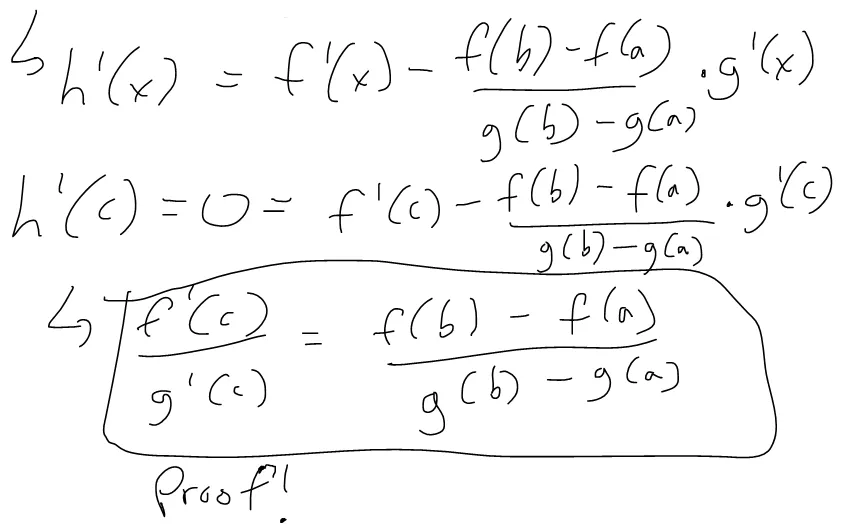 ↳ h'(x) = f'(x) - \frac{f(b)-f(a)}{g(b)-g(a)} \cdot g'(x)
h'(c) = 0 = f'(c) - \frac{f(b)-f(a)}{g(b)-g(a)} \cdot g'(c)
↳ \frac{f'(c)}{g'(c)} = \frac{f(b)-f(a)}{g(b)-g(a)}
Proof!